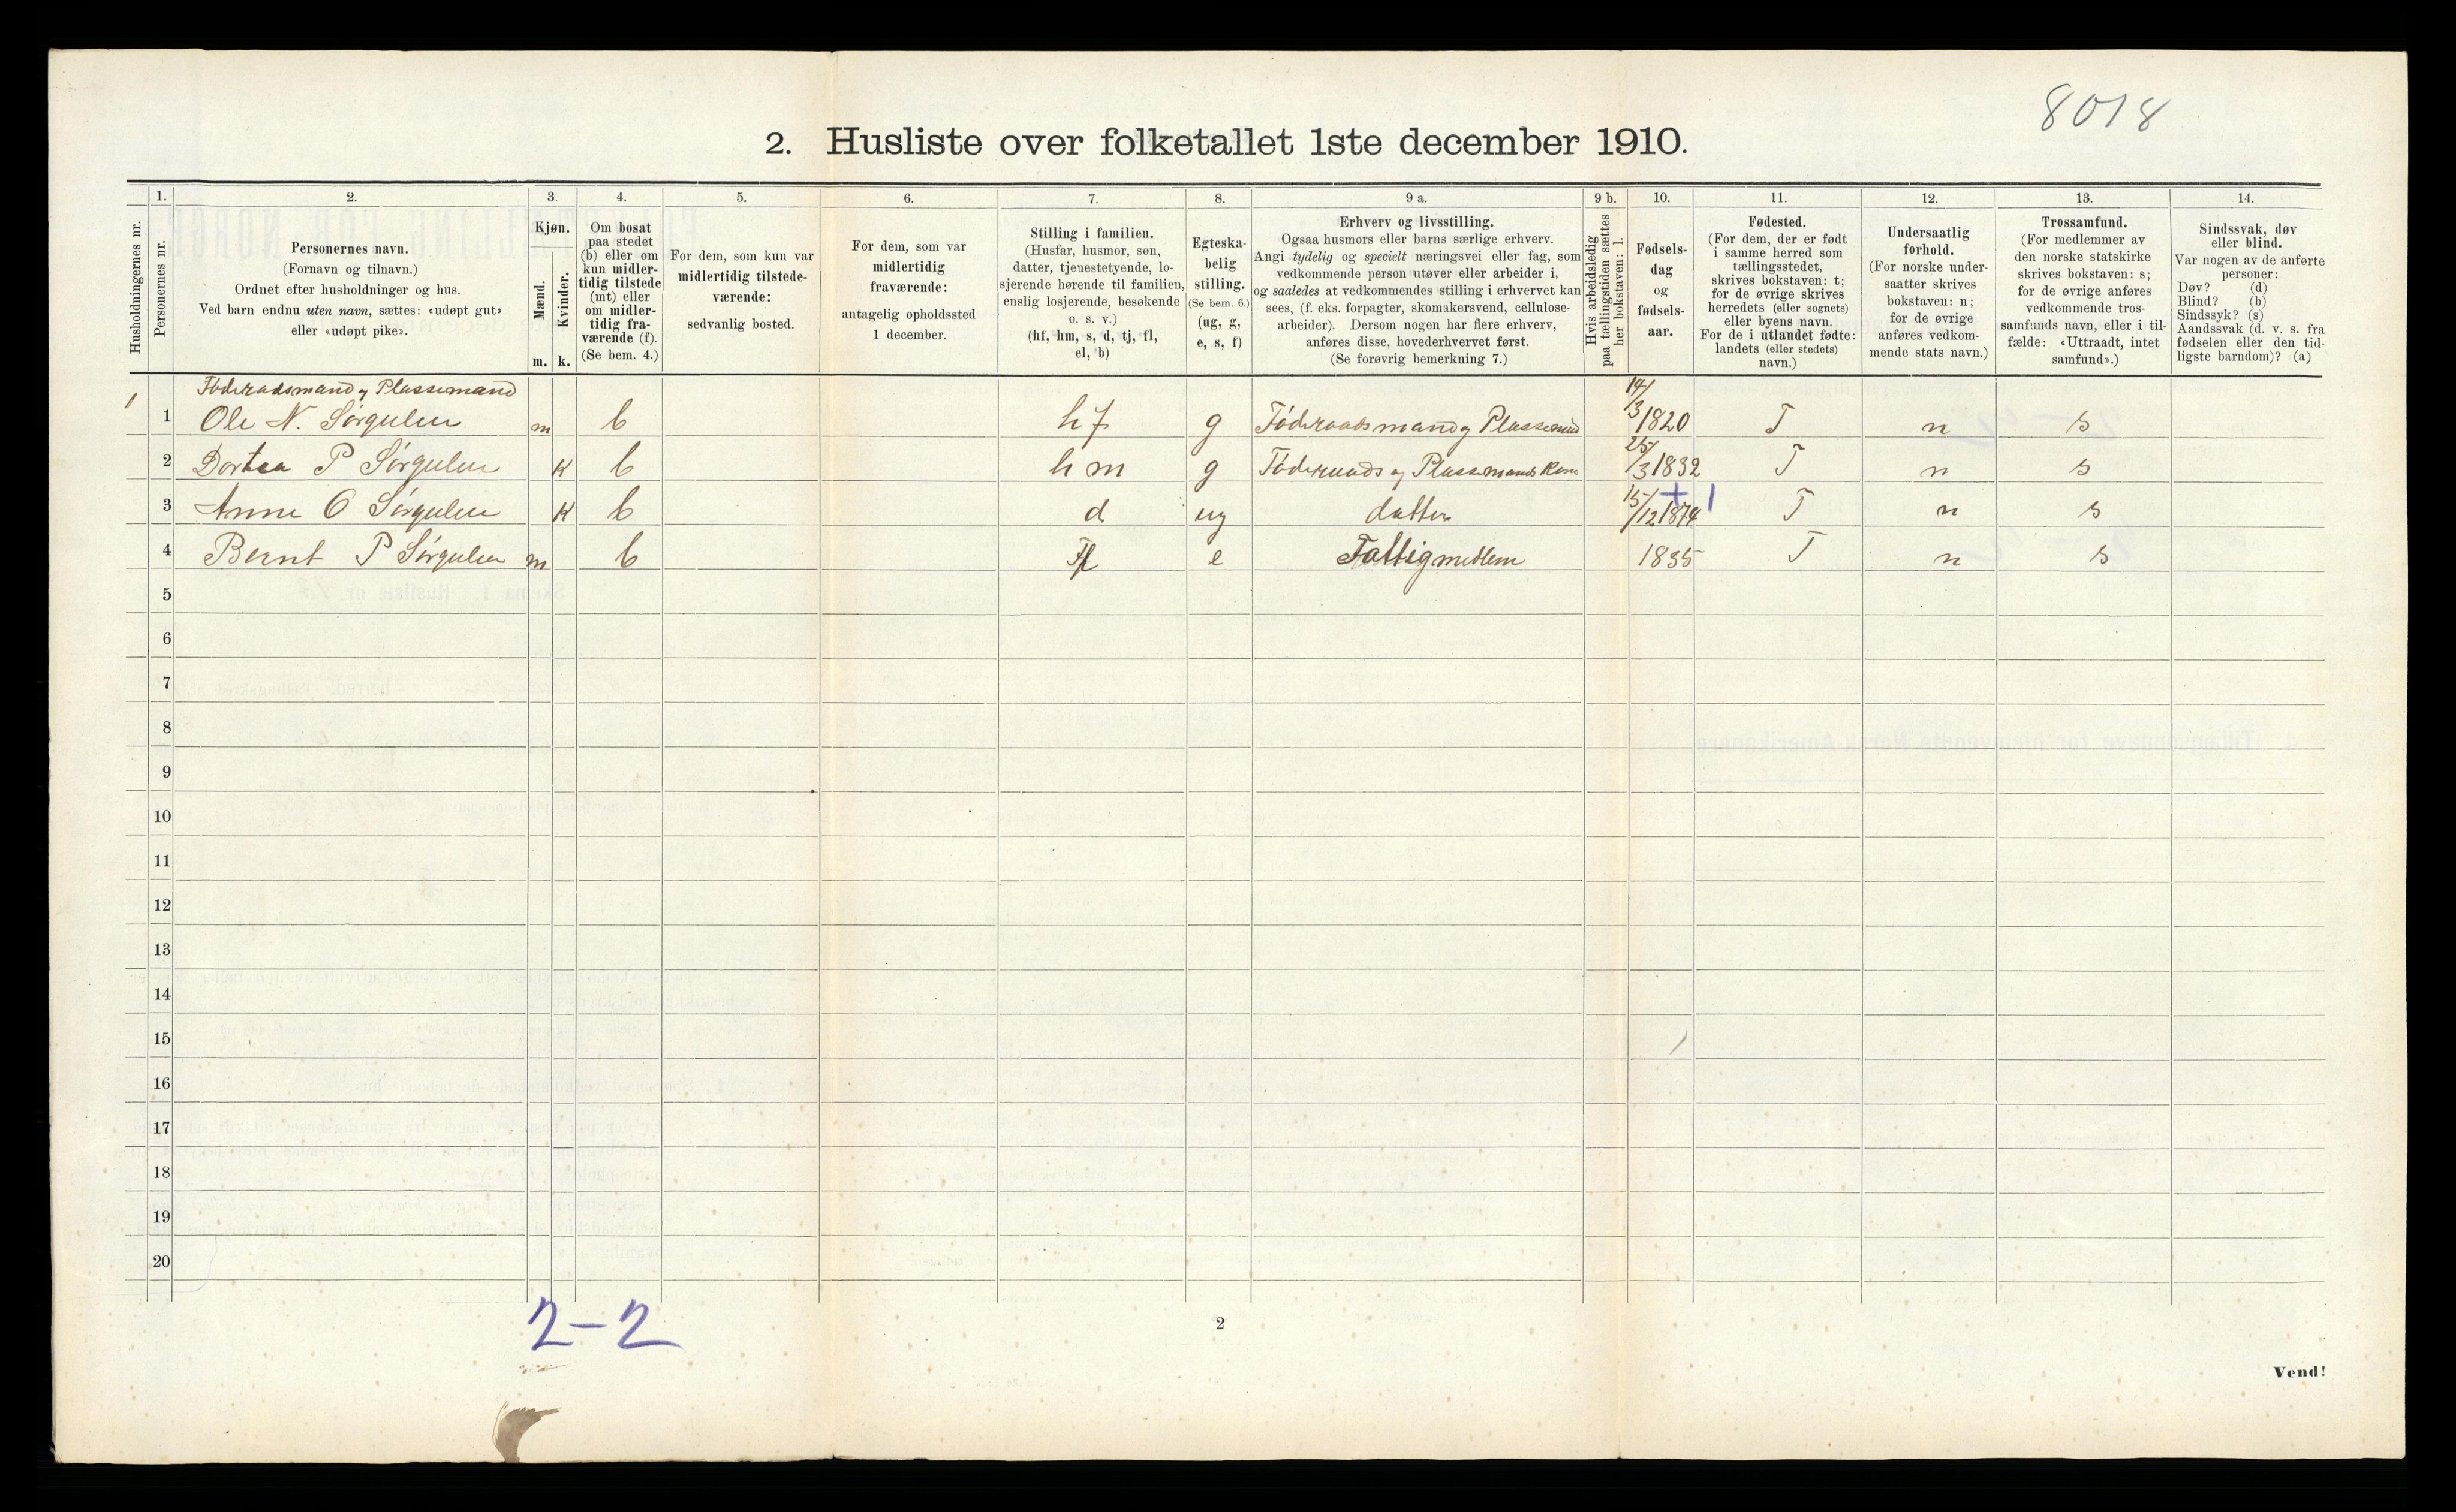 8018
2. Husliste over folketallet 1ste december 1910.
Husholdningernes nr.
1.
Personernes nr.
2.
Personernes navn.
(Fornavn og tilnavn.)
Ordnet efter husholdninger og hus.
Ved barn endnu uten navn, sættes: «udøpt gut»
eller «udøpt pike».
3.
Kjøn.
Mænd.
m.
Kvinder.
k.
4.
Om bosat
paa stedet
(b) eller om
kun midler-
tidig tilstede
(mt) eller
om midler-
tidig fra-
værende (f).
(Se bem. 4.)
5.
For dem, som kun var
midlertidig tilstede-
værende:
sedvanlig bosted.
6.
For dem, som var
midlertidig
fraværende:
antagelig opholdssted
1 december.
7.
Stilling i familien.
(Husfar, husmor, søn,
datter, tjenestetyende, lo-
sjerende hørende til familien,
enslig losjerende, besøkende
o. s. v.)
(hf, hm, s, d, tj, fl,
el, b)
8.
Egteska-
belig
stilling.
(Se bem. 6.)
(ug, g,
e, s, f)
9 a.
Erhverv og livsstilling.
Ogsaa husmors eller barns særlige erhverv.
Angi tydelig og specielt næringsvei eller fag, som
vedkommende person utøver eller arbeider i,
og saaledes at vedkommendes stilling i erhvervet kan
sees, (f. eks. forpagter, skomakersvend, cellulose-
arbeider). Dersom nogen har flere erhverv,
anføres disse, hovederhvervet først.
(Se forøvrig bemerkning 7.)
9 b.
Hvis arbeidsledig
paa tællingstiden sættes
her bokstaven: l.
10.
Fødsels-
dag
og
fødsels-
aar.
11.
Fødested.
(For dem, der er født
i samme herred som
tællingsstedet,
skrives bokstaven: t;
for de øvrige skrives
herredets (eller sognets)
eller byens navn.
For de i utlandet fødte:
landets (eller stedets)
navn.)
12.
Undersaatlig
forhold.
(For norske under-
saatter skrives
bokstaven: n;
for de øvrige
anføres vedkom-
mende stats navn.)
13.
Trossamfund.
(For medlemmer av
den norske statskirke
skrives bokstaven: s;
for de øvrige anføres
vedkommende tros-
samfunds navn, eller i til-
fælde: «Uttraadt, intet
samfund».)
14.
Sindssvak, døv
eller blind.
Var nogen av de anførte
personer:
Døv? (d)
Blind? (b)
Sindssyk? (s)
Aandssvak (d. v. s. fra
fødselen eller den tid-
ligste barndom)? (a)
Føderaadsmand og Plassemand
1 1 Ole N. Sørgulen m b hf g Føderaadsmand og Plassemand 14/3 1820 T n s
2 Dortea P Sørgulen K b hm g Føderaads og Plassemands Kone 25/3 1832 T n s
3 Anne O Sørgulen K b d ug datter 15/12 1874 + 1 T n s
4 Bernt P Sørgulen m b Fl e Fattigmedlem 1835 T n s
5
6
7
8
9
10
11
12
13
14
15
16
17
18
19
20
2-2
2
Vend!